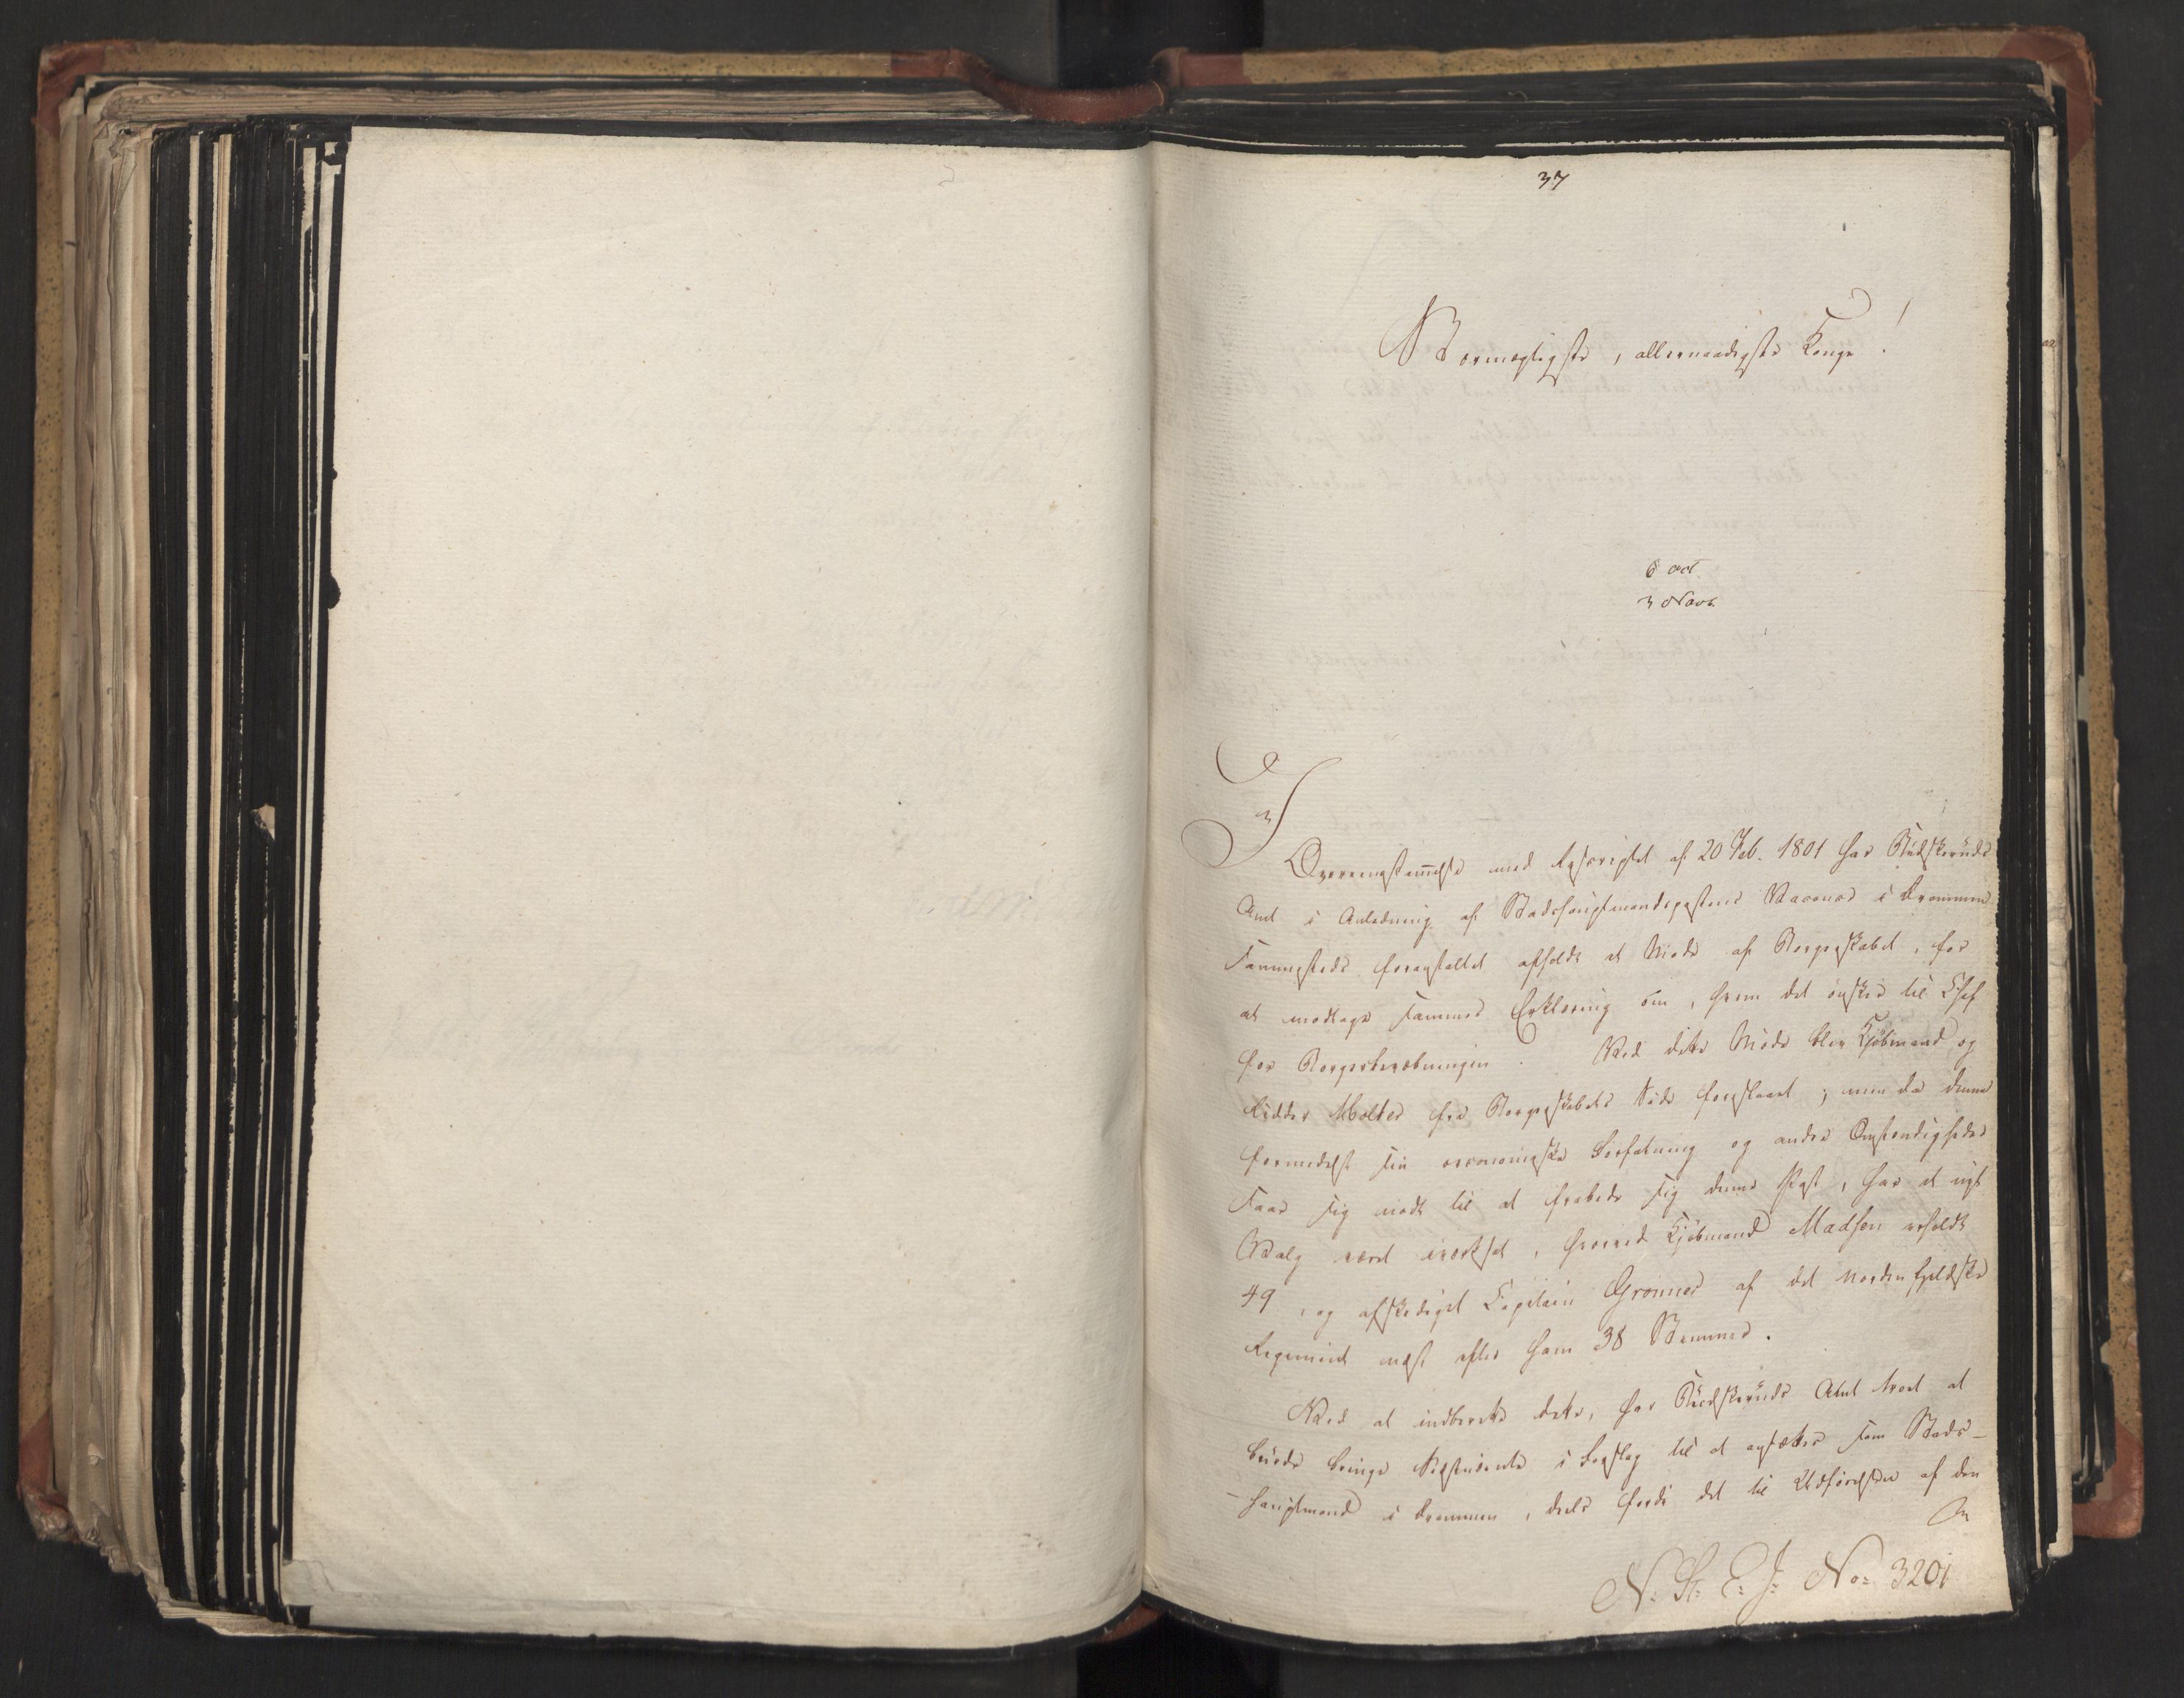 37
Stormægtigste, allernaadigste Konge!
6 oct
3 Novb.
I
Overeenstemmelse med Rescriptet af 20 Feb. 1801 har Budskeruds
Amt i Anledning af Stadshauptmandspostens Vacance i Drammen
sammesteds foranstaltet afholdt et Møde af Borgerskabet, for
at modtage sammes Erklæring om, hvem det ønsker til Chef
for Borgerbevæbningen. Ved dette Møde blev Kjøbmand og
Ridder Moltes fra Borgerskabets Side foreslaaet; men da denne
formedelst sin oeconomiske Forfatning og andre Omstændigheder
saae sig nødt til at frabede sig denne Post, har et nyt
Valg været iværksat, hvorved Kjøbmand Madsen erholdt
49, og afskediget Capitain Grønner af det nordenfjeldske
Regiment næst efter ham 38 Stemmer.
Ved at indberette dette, har Budskeruds Amt troet at
burde bringe Sidstnævnte i Forslag til at ansættes som Stads-
-hauptmand i Drammen, deels fordi det til Udførelsen af den
N. St: C: J: No= 3201